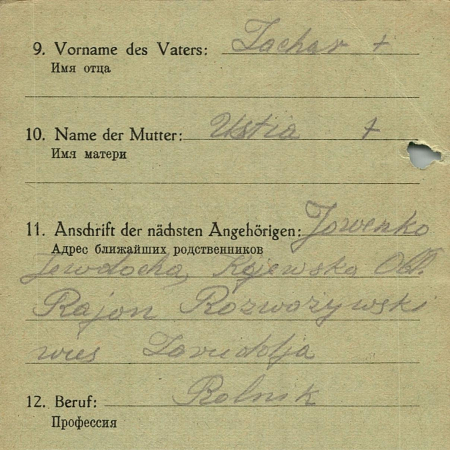 9. Vorname des Vaters: Zachar +
Имя отца
10. Name der Mutter: Ustia +
Имя матери
11. Anschrift der nächsten Angehörigen: Jowenko
Адрес ближайших родственников
Jewdocha, Kijewska Obl.
Rajon Rozwożywski
wies
12. Beruf: Rolnik
Профессия